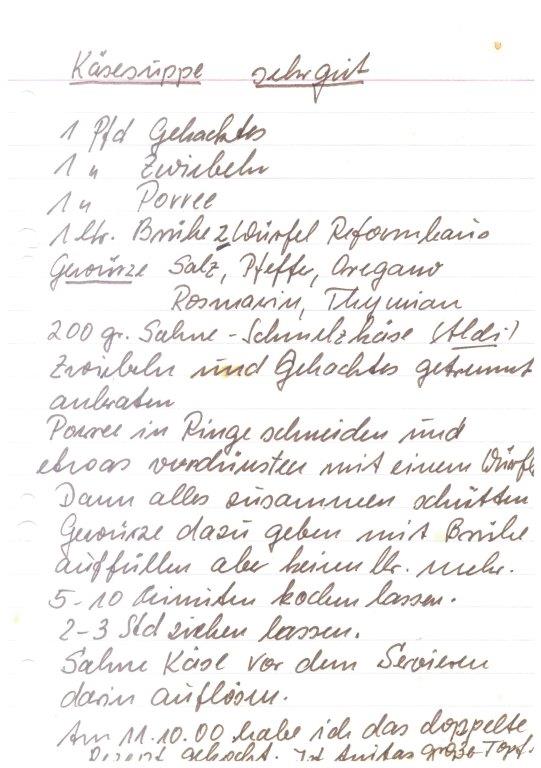 Käsesuppe sehr gut
1 Pfd Gehacktes
1 " Zwiebeln
1 " Porree
1 ltr. Brühe 2 Würfel Reformhaus
Gewürze Salz, Pfeffer, Oregano
Rosmarin, Thymian
200 gr. Sahne-Schmelzkäse (Aldi)
Zwiebeln und Gehacktes getrennt
anbraten
Porree in Ringe schneiden und
etwas vordünsten mit einem Würfel
Dann alles zusammen schütten
Gewürze dazu geben mit Brühe
auffüllen aber keinen ltr. mehr.
5-10 Minuten kochen lassen.
2-3 Std ziehen lassen.
Sahne Käse vor dem Servieren
darin auflösen.
Am 11.10.00 habe ich das doppelte
Rezept gekocht. Ist Anitas große Topf.